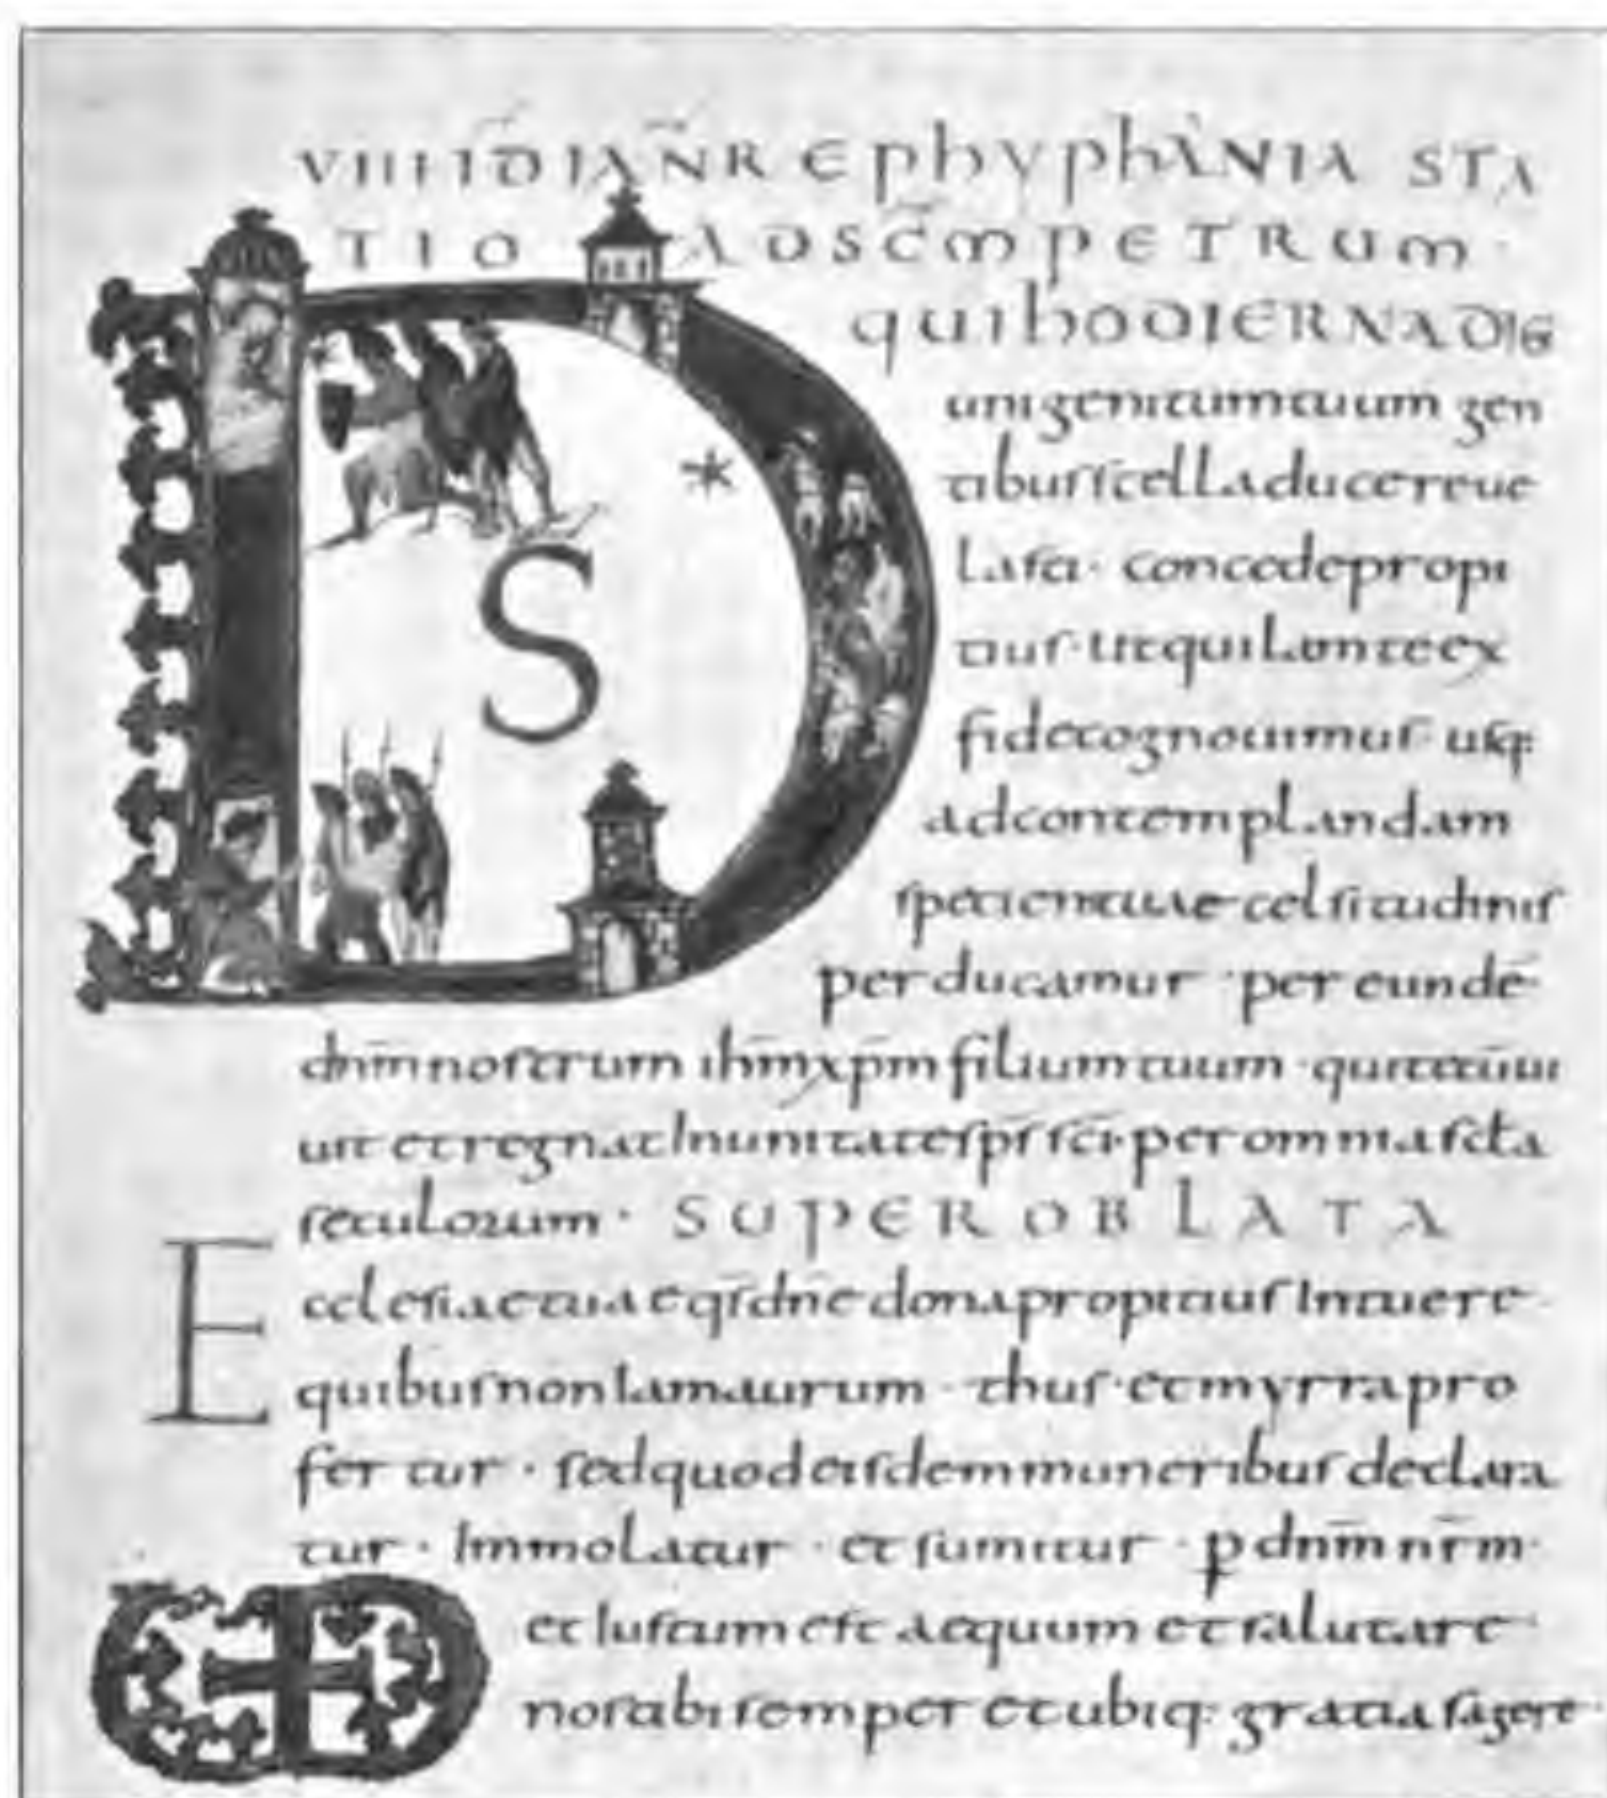 VIIII ID IAÑR EPhYPhANIA STA
TIO AD SC̄M PETRUM ·
DS qui hODIERNA DIE
unigenitum tuum gen
tibus stella duce reue
lasti · concede propi
tius · ut qui iam te ex
fide cognouimus · usq:
ad contemplandam
speciem tuae celsitudinis
perducamur · per eundē
dnm̄ nostrum ihm̄ xpm̄ filium tuum · qui tecū ui
uit et regnat In unitate sps̄ sc̄i · per omnia scła
seculorum · SUPER OBLATA
Ecclesiae tuae qs̄ dnē dona propitius Intuere ·
quibus non iam aurum · thus · et myrra pro
fertur · sed quod eisdem muneribus declara
tur · Immolatur · et sumitur · p dnm̄ nr̄m ·
et Iustum est aequum et salutare ·
nos tibi semper et ubiq: gratias agere ·